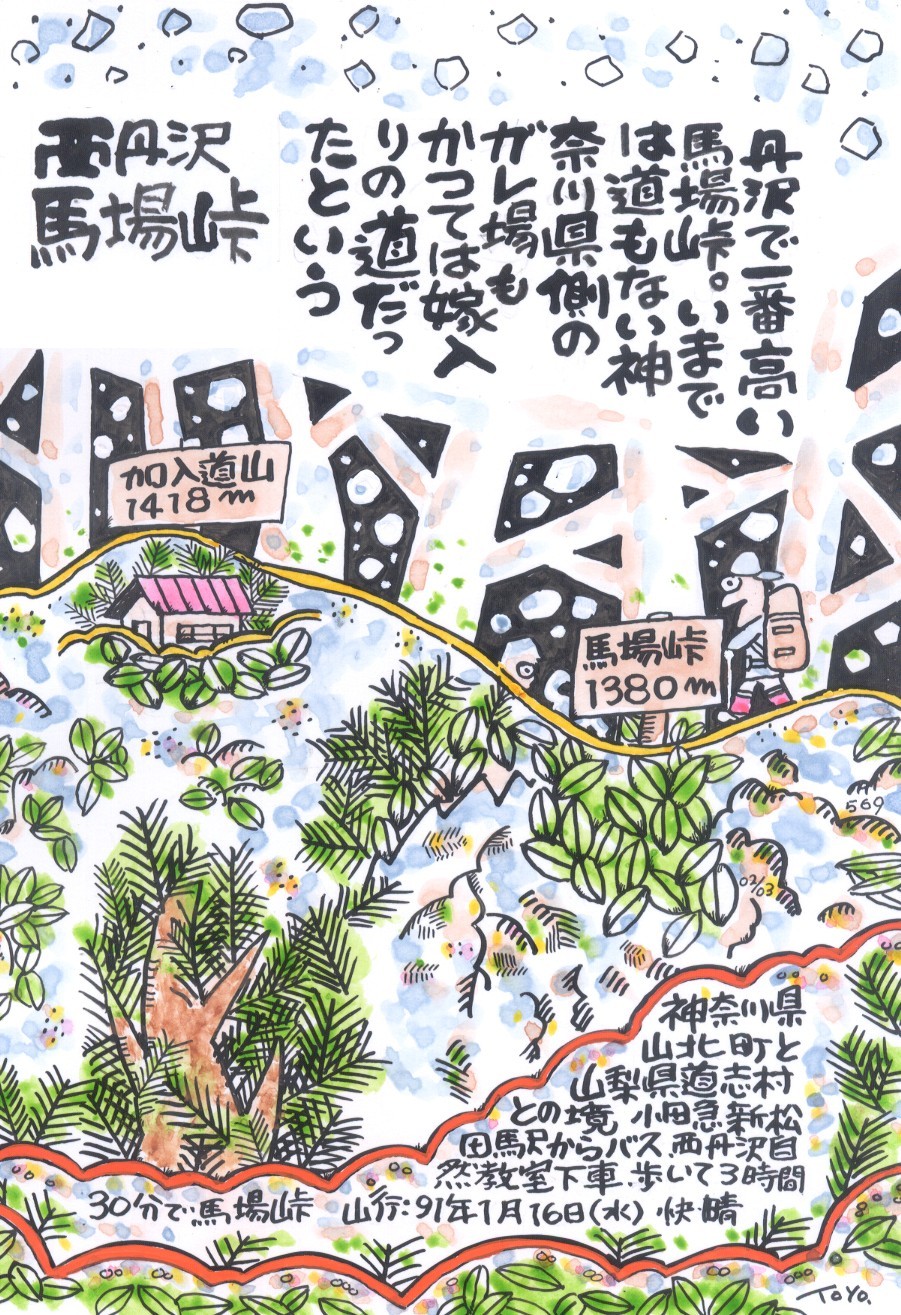 西丹沢
馬場峠
丹沢で一番高い
馬場峠。いまで
は道もない神
奈川県側の
ガレ場も
かつては嫁入
りの道だっ
たという
加入道山
1418m
馬場峠
1380m
569
02/03
神奈川県
山北町と
山梨県道志村
との境 小田急新松
田駅からバス 西丹沢自
然教室下車.歩いて3時間
30分で馬場峠 山行:91年1月16日(水)・快晴
TOYO.